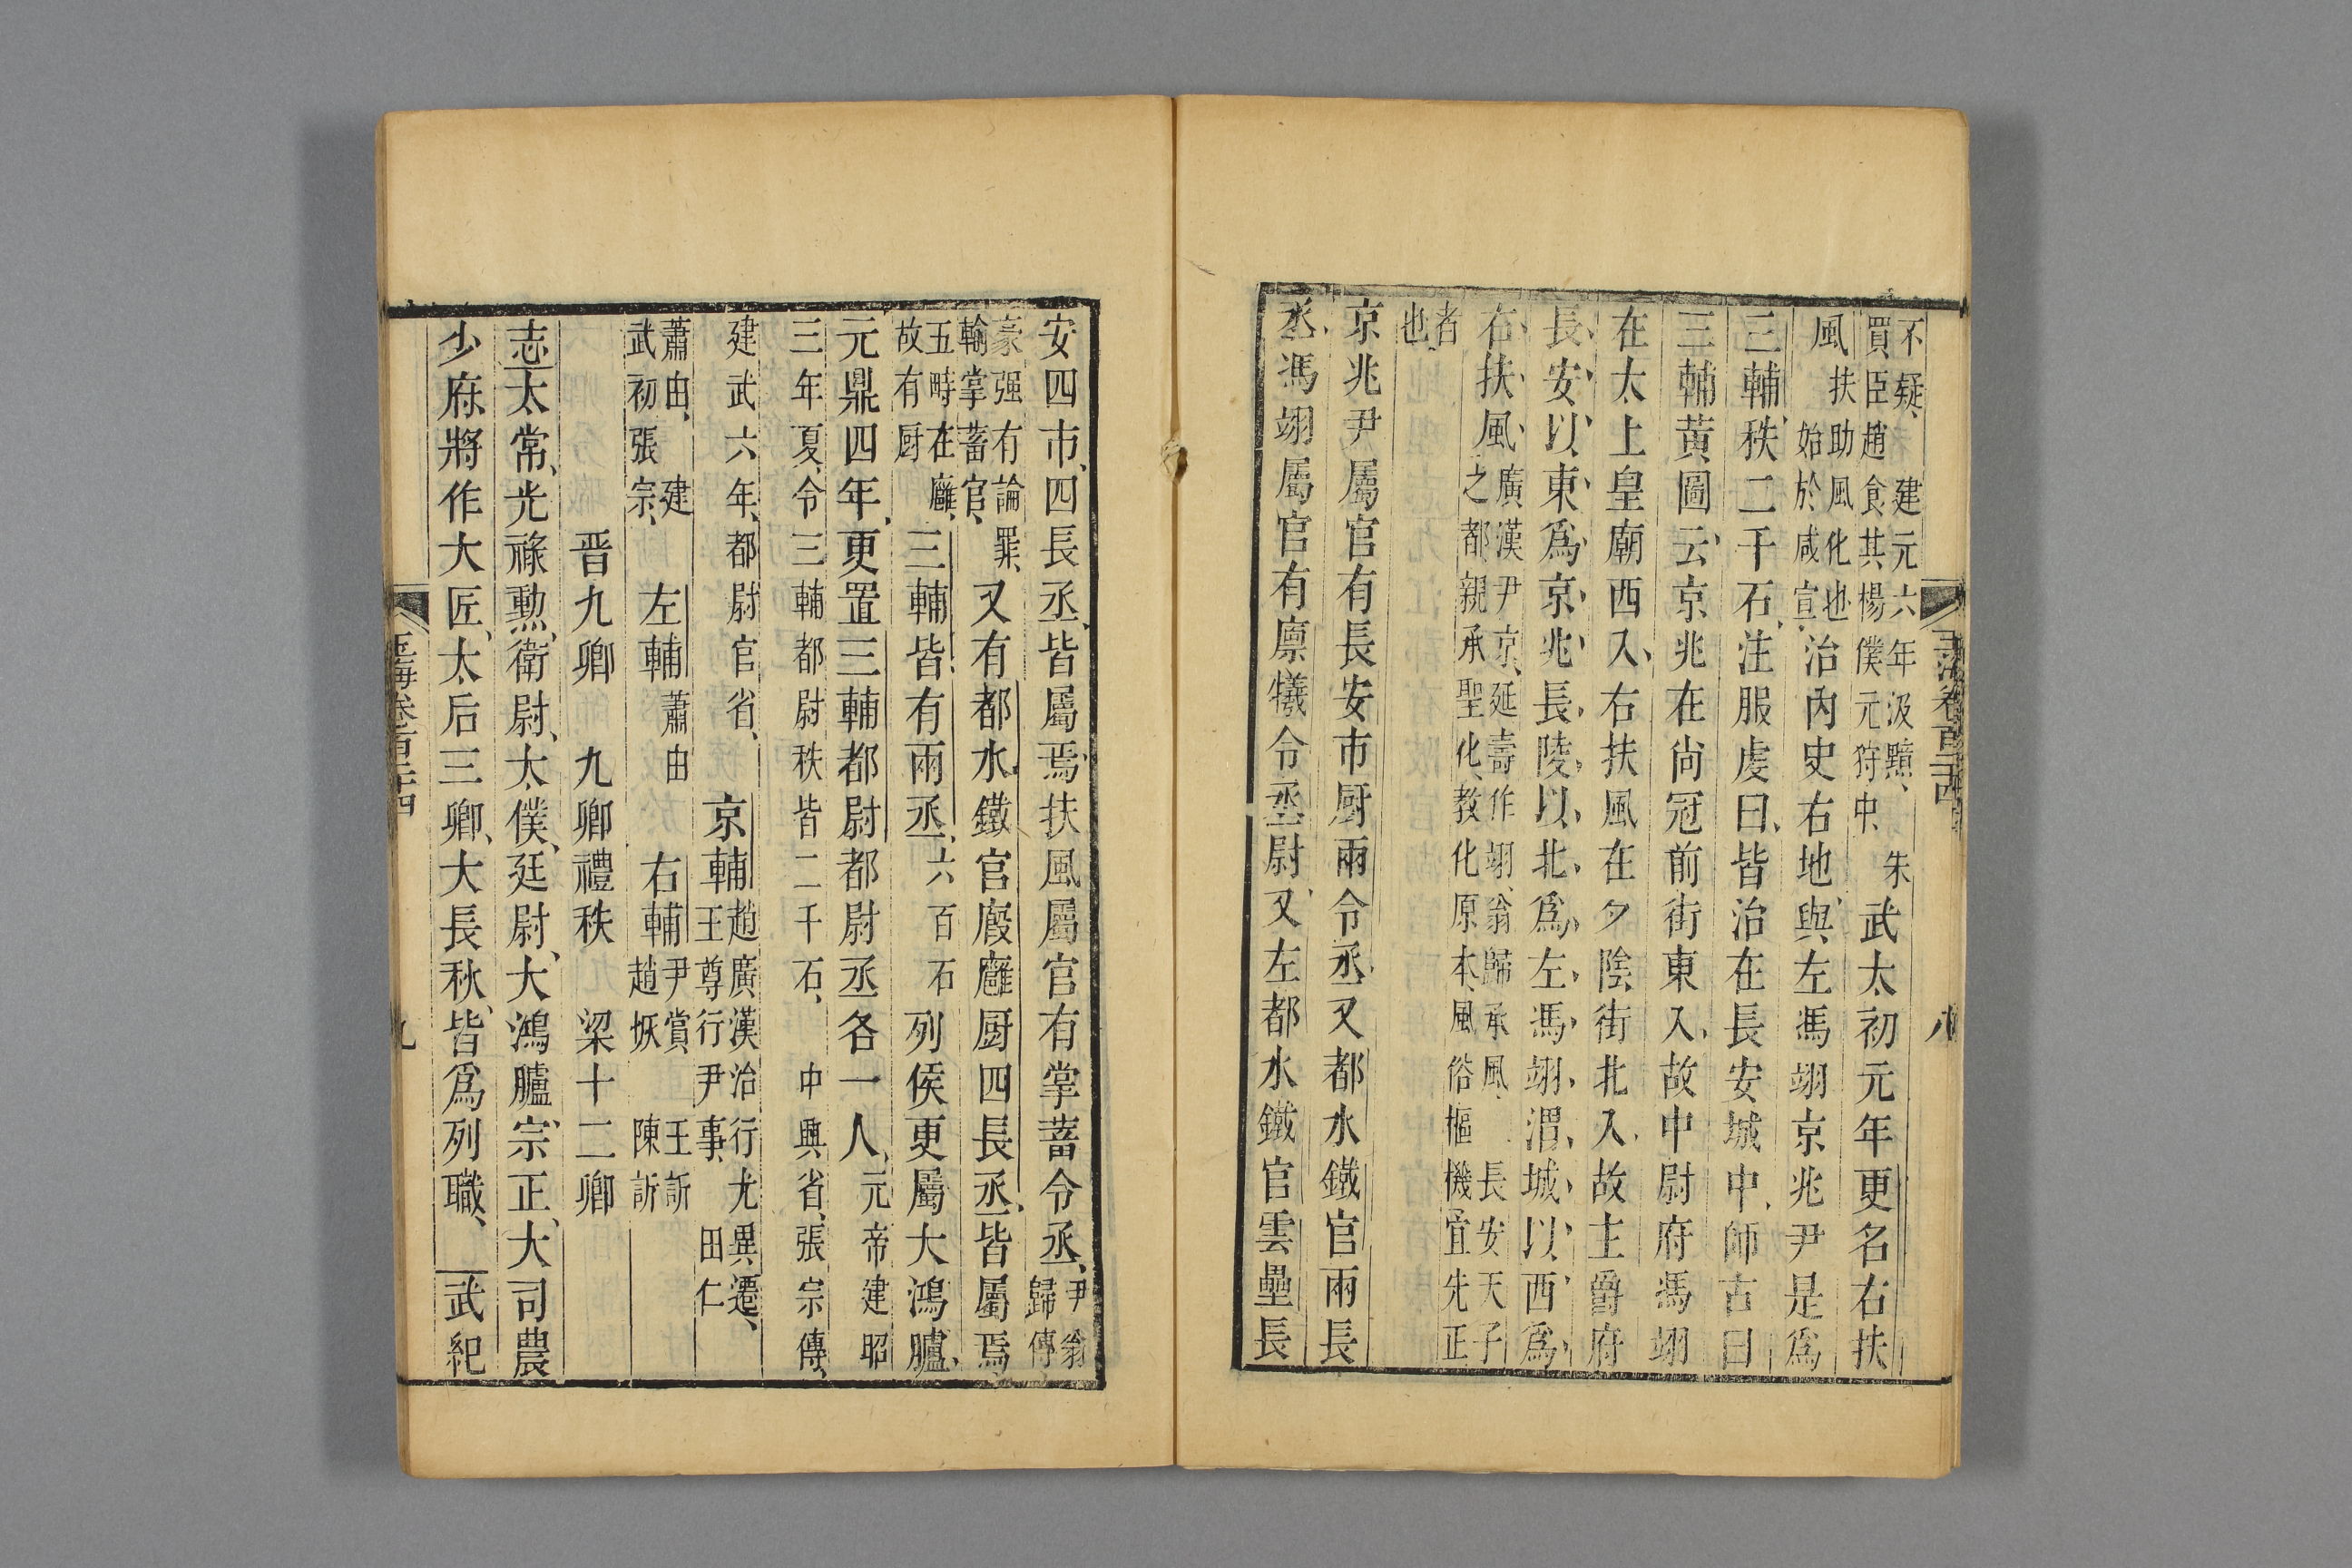 玉海卷百二十四　八
不疑、建元六年汲黯、朱
買臣趙食其楊僕元狩中、
武太初元年更名右扶
風
扶助風化也
始於咸宣、
治内史右地與左馮翊京兆尹是爲
三輔、秩二千石、注服虔曰、皆治在長安城中、師古曰
三輔黃圖云、京兆在尚冠前街東入、故中尉府馮翊
在太上皇廟西入、右扶風在夕陰街北入、故主爵府
長安以東爲京兆長陵以北爲左馮翊渭城以西爲
右扶風
廣漢尹京、延壽作翊、翁歸承風、長安天子
之都親承聖化、教化原本、風俗樞機宜先正
者
也、
京兆尹屬官有長安市厨兩令丞、又都水鐵官兩長
丞、馮翊屬官有廩犧令丞尉、又左都水鐵官雲壘長
安四市、四長丞、皆屬焉、扶風屬官有掌蓄令丞、
尹翁
歸傳
豪强有論罪、
輸掌蓄官、
又有都水鐵官廄廱厨四長丞、皆屬焉、
五畤在廱、
故有厨
三輔皆有兩丞、六百石列侯更屬大鴻臚、
元鼎四年、更置三輔都尉都尉丞各一人、元帝建昭
三年夏、令三輔都尉秩皆二千石、　中興省、張宗傳、
建武六年、都尉官省、　京輔
趙廣漢治行尤異遷、
王尊行尹事、田仁
蕭由、建
武初張宗、
左輔
蕭由
右輔
尹賞　王訢
趙恢　陳訢
晋九卿　九卿禮秩　梁十二卿
志太常、光祿勲、衛尉、太僕、廷尉、大鴻臚、宗正、大司農
少府將作大匠、太后三卿、大長秋、皆爲列職、　武紀
玉海卷百二十四　九